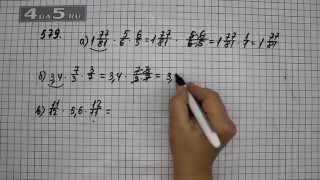 4АО5.RU
579.
а) 1 77/81 · 5/6 · 6/5 = 1 77/81 · 5·6/6·5 = 1 77/81 · 1/1 = 1 77/81
б) 3,4 · 7/3 · 3/7 = 3,4 · 7·3/3·7 = 3,
в) 11/12 · 5,6 · 12/11 =